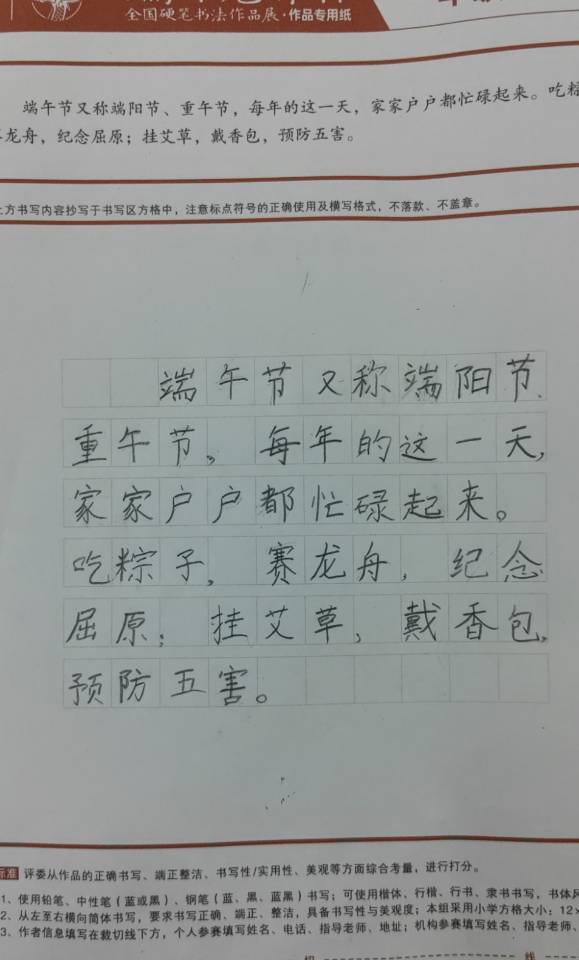 全国硬笔书法作品展·作品专用纸
端午节又称端阳节、重午节，每年的这一天，家家户户都忙碌起来。吃粽
龙舟，纪念屈原；挂艾草，戴香包，预防五害。
方书写内容抄写于书写区方格中，注意标点符号的正确使用及横写格式，不落款、不盖章。
端午节又称端阳节、
重午节，每年的这一天，
家家户户都忙碌起来。
吃粽子，赛龙舟，纪念
屈原；挂艾草，戴香包，
预防五害。
标准 评委从作品的正确书写、端正整洁、书写性/实用性、美观等方面综合考量，进行打分。
1、使用铅笔、中性笔（蓝或黑）、钢笔（蓝、黑、蓝黑）书写；可使用楷体、行楷、行书、隶书书写，书体风
2、从左至右横向简体书写，要求书写正确、端正、整洁，具备书写性与美观度；本组采用小学方格大小：12×
3、作者信息填写在裁切线下方，个人参赛填写姓名、电话、指导老师、地址；机构参赛填写姓名、指导老师、
切 线